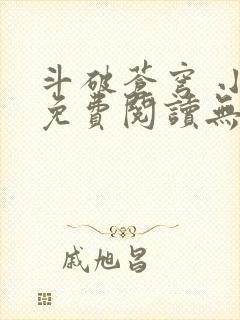 斗破蒼穹 小
免費閱讀無
戚旭昌